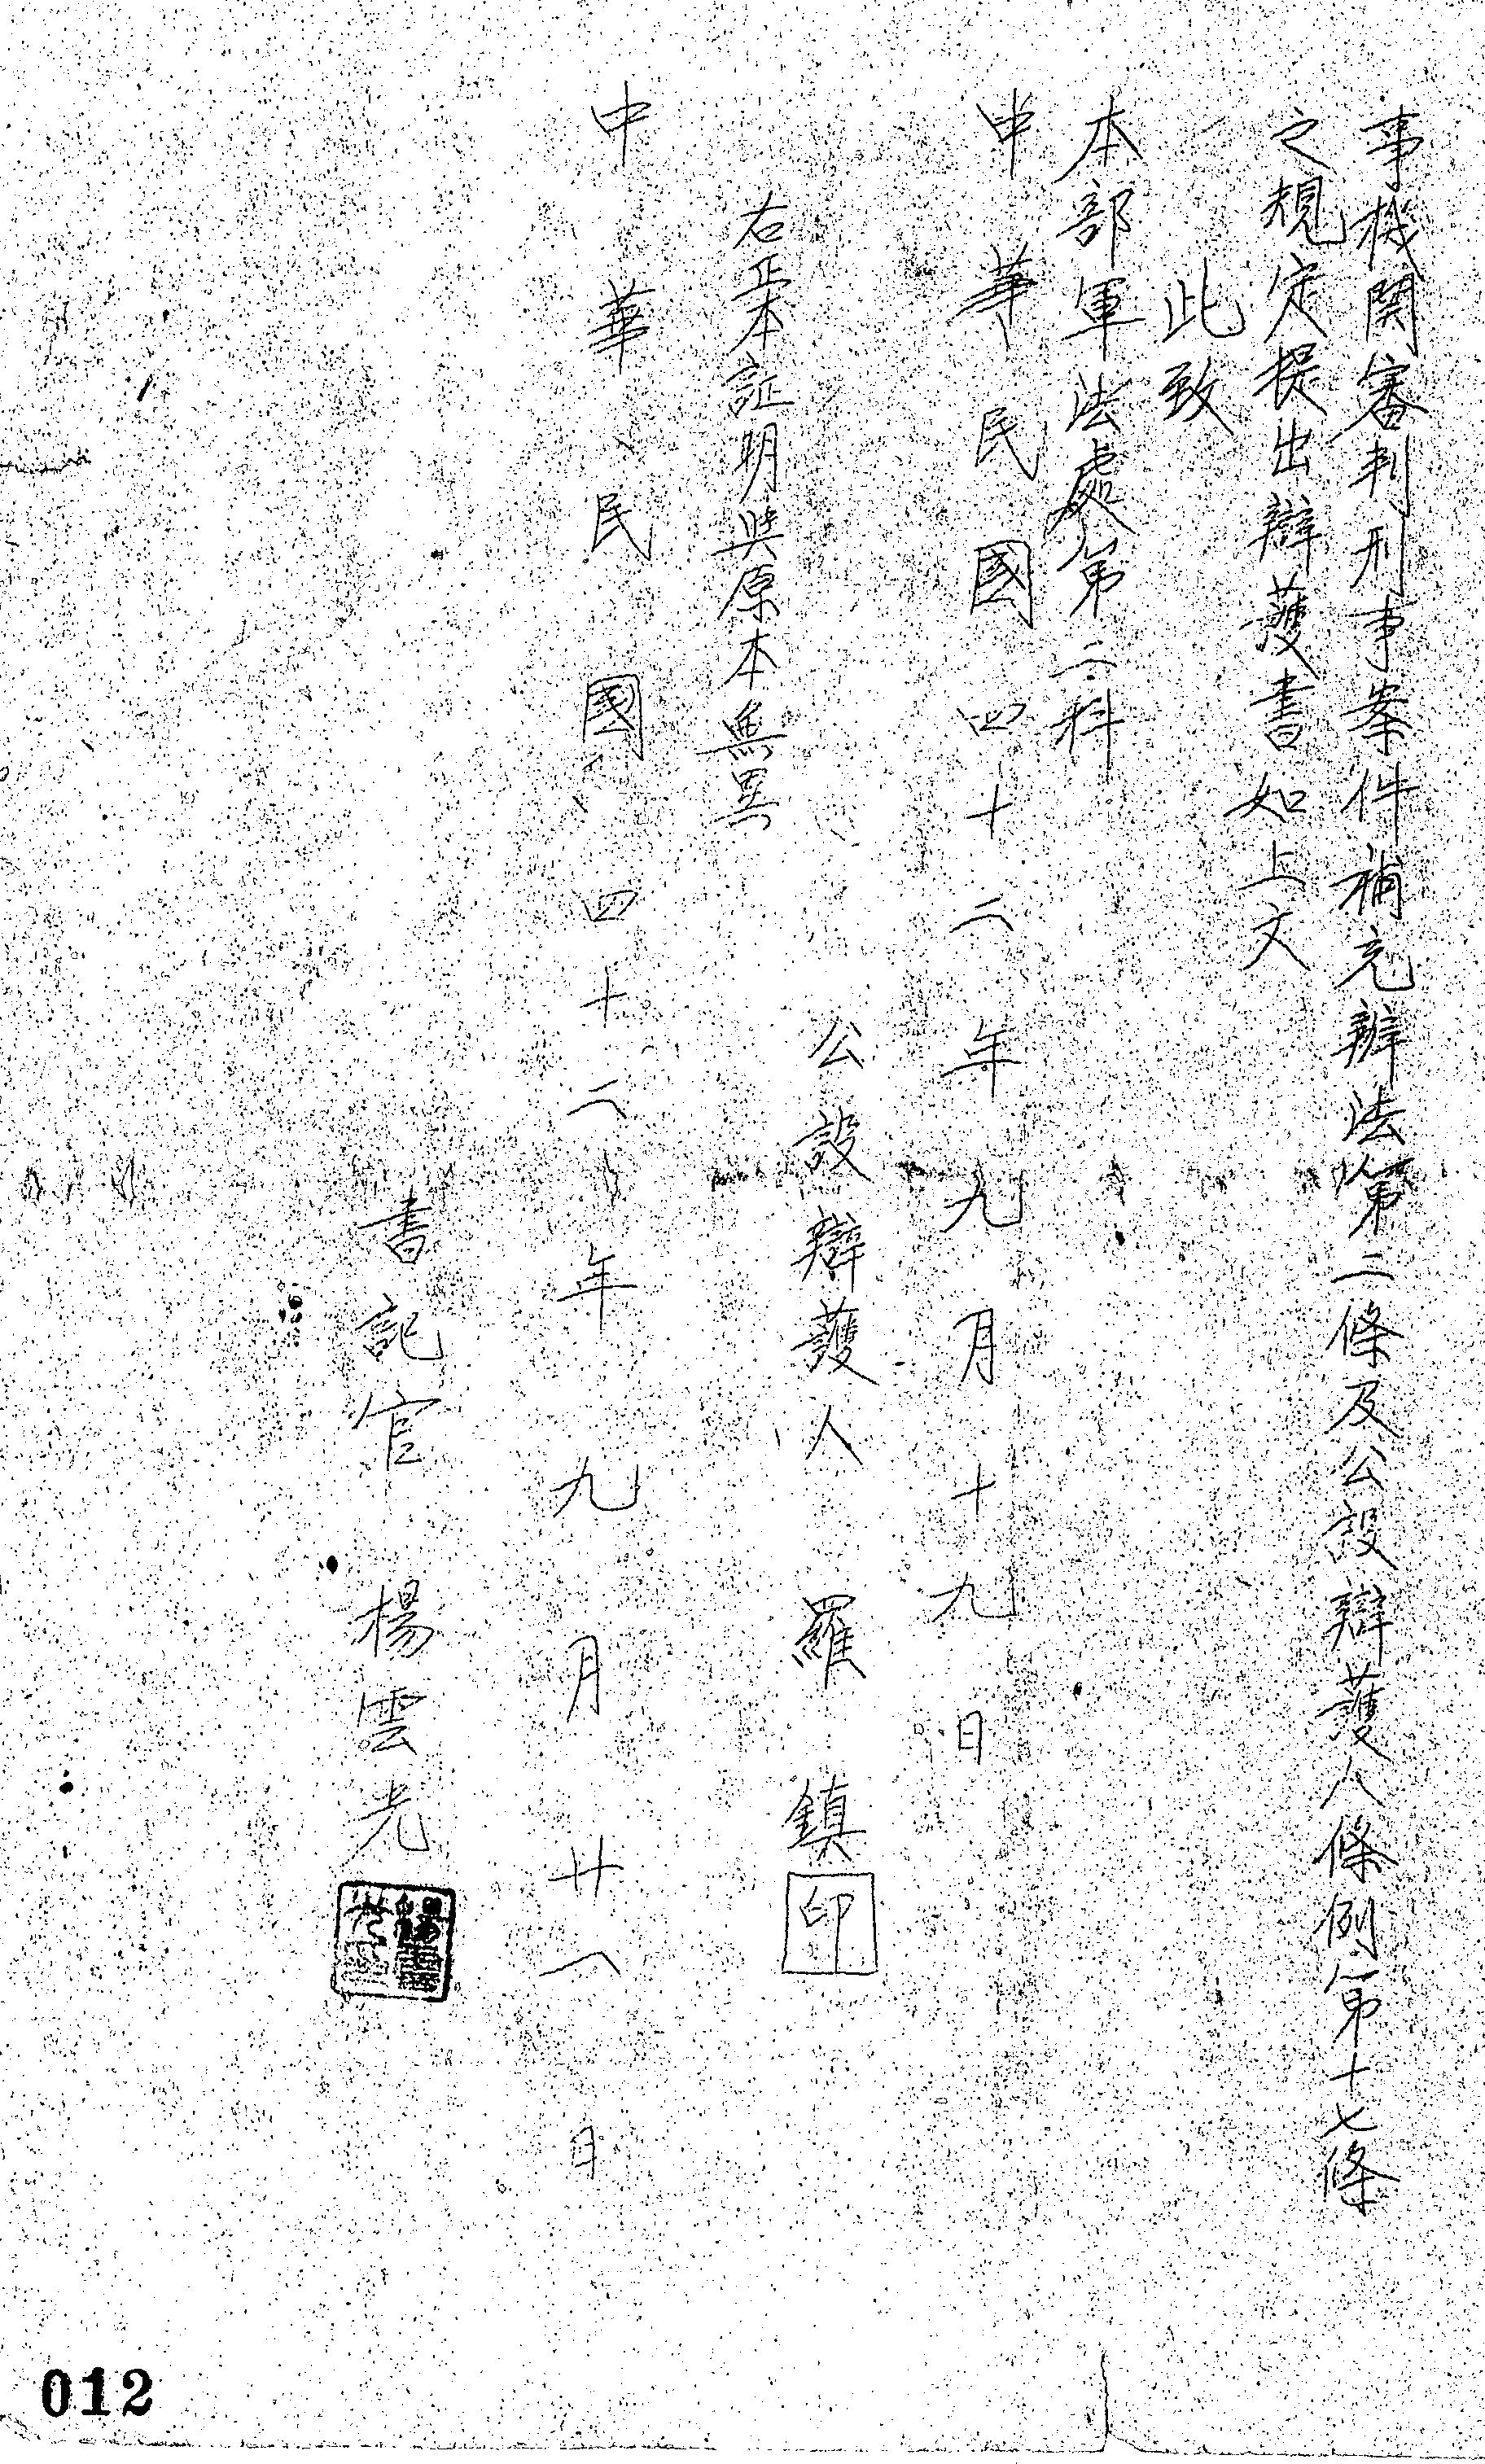 事機関審判刑事案件補充辦法第二條及公設辯護人條例第十七條
之規定提出辯護書如上文
此致
本部軍法處第二科
中華民國四十二年九月十九日
公設辯護人 羅鎮 印
右正本証明與原本無異
中華民國四十二年九月廿八日
書記官 楊雲光
楊雲光印
012